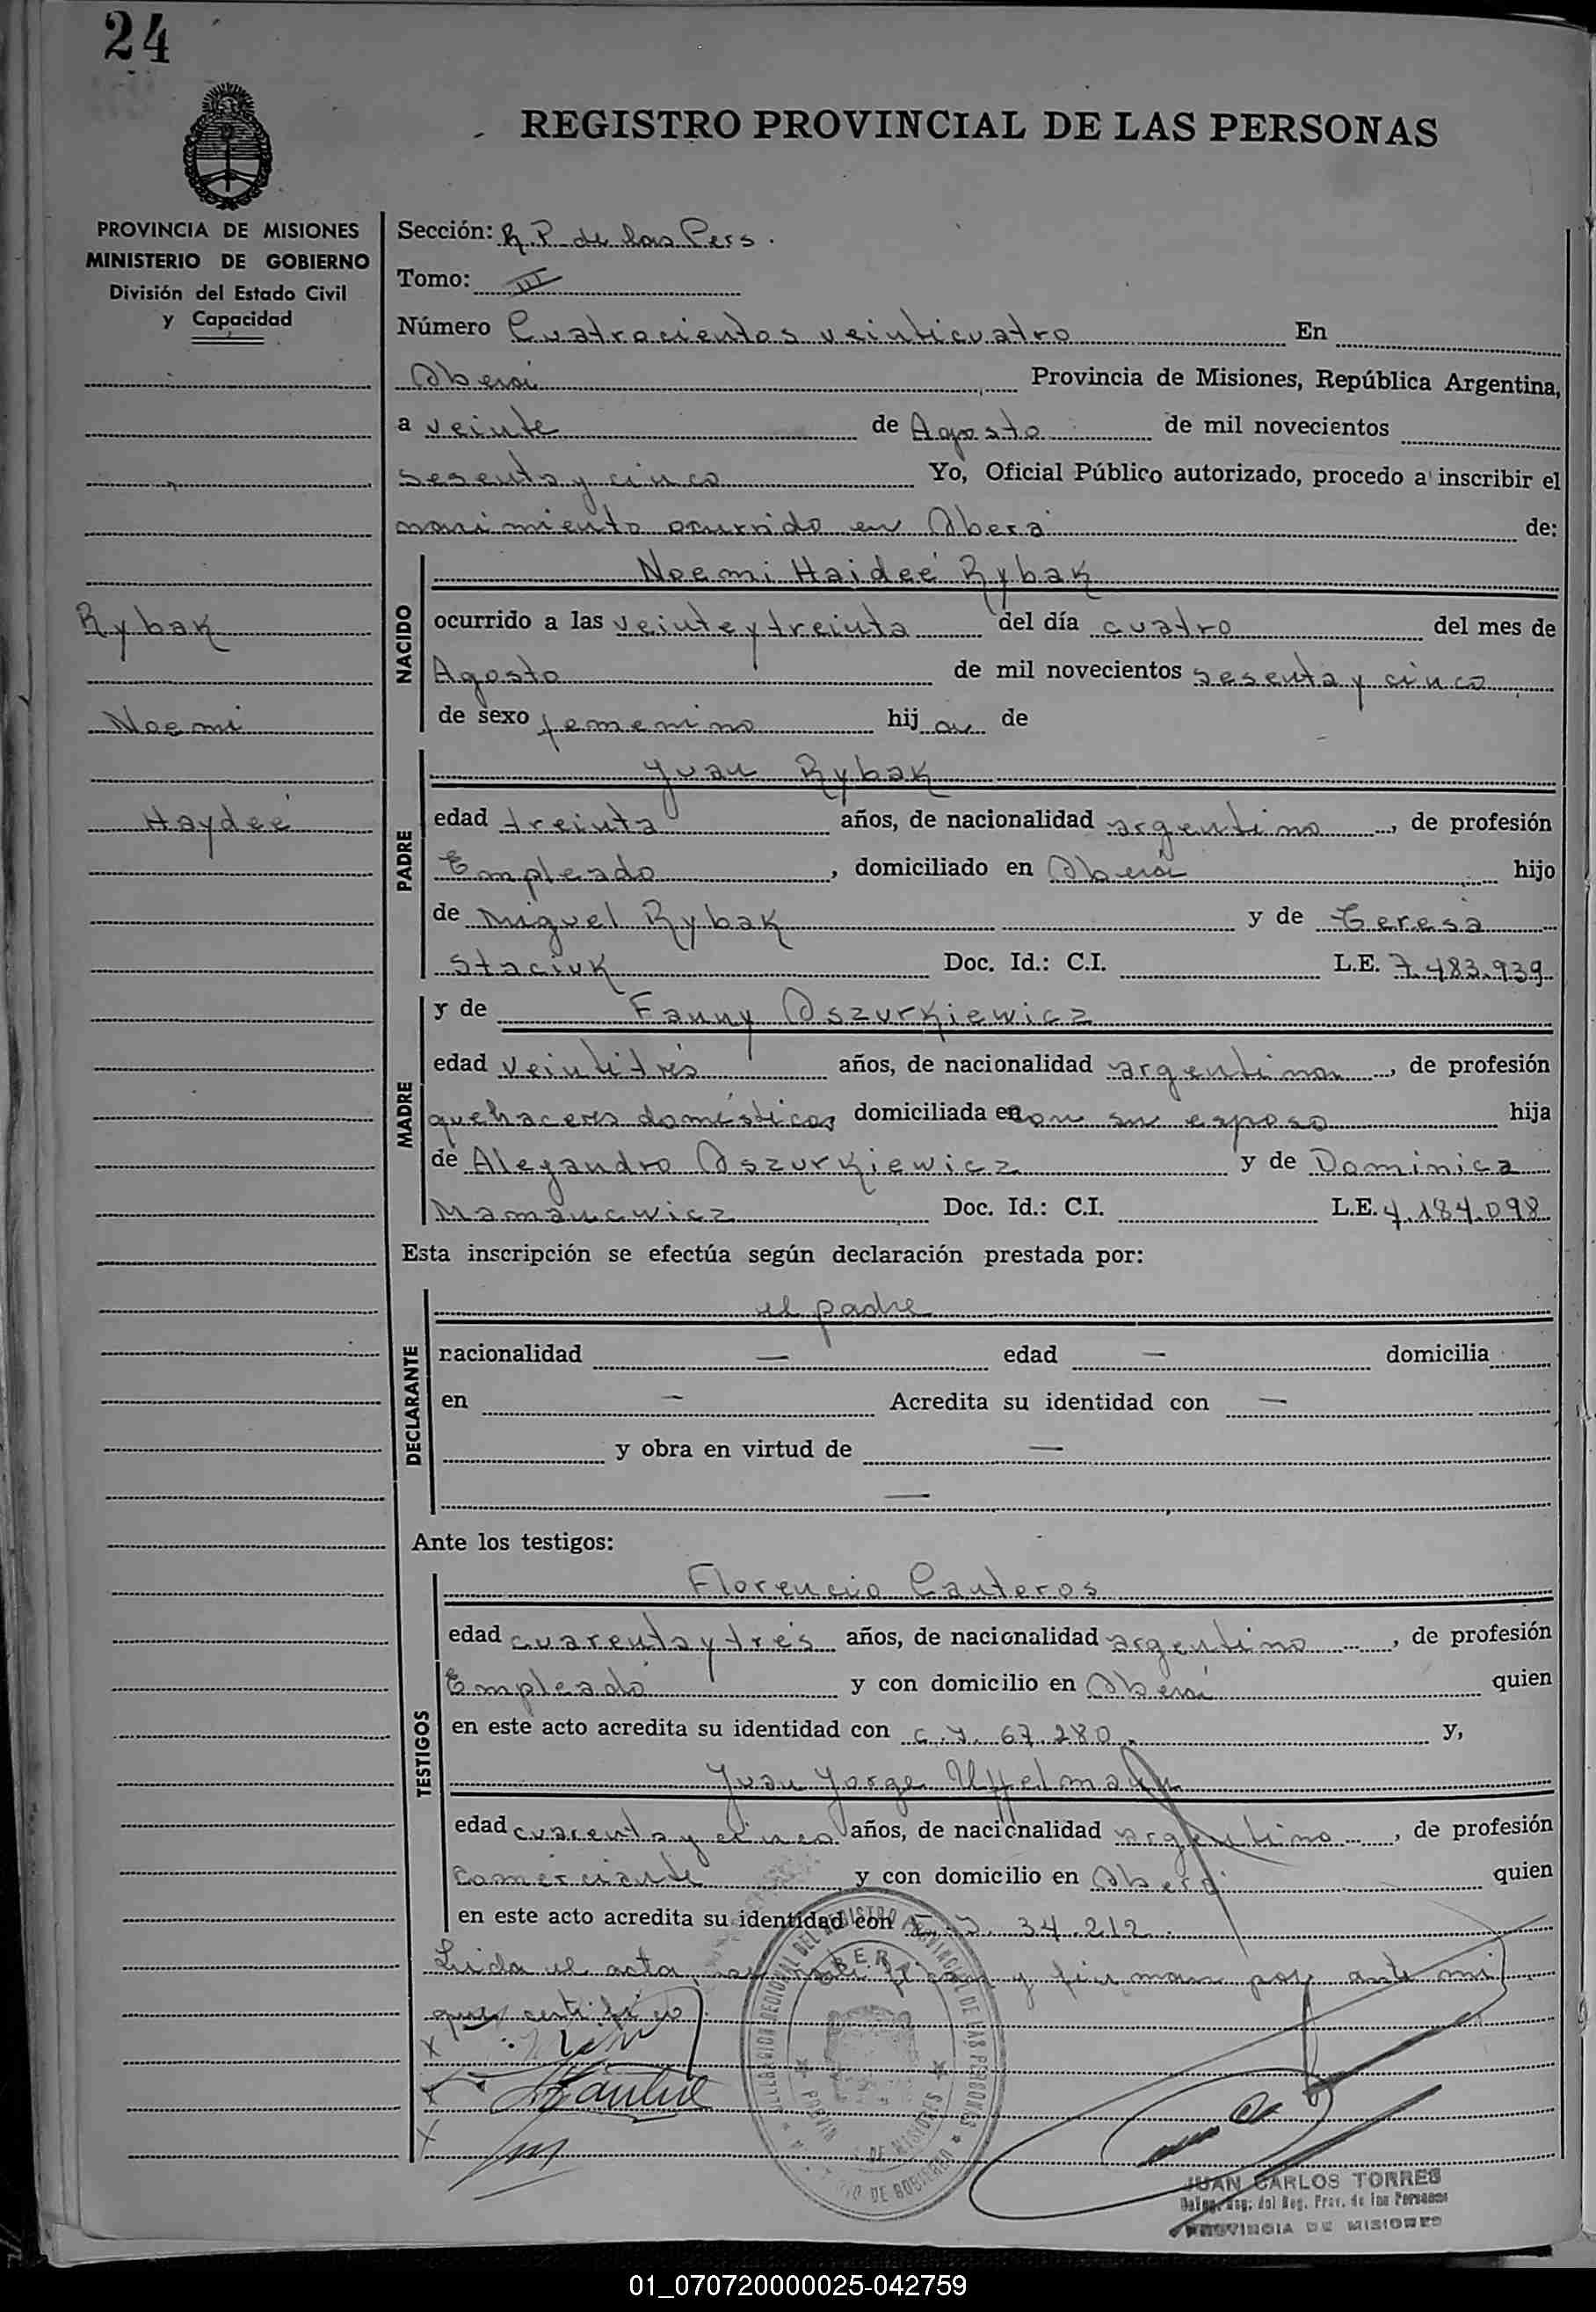 24
REGISTRO PROVINCIAL DE LAS PERSONAS
PROVINCIA DE MISIONES
MINISTERIO DE GOBIERNO
División del Estado Civil
y Capacidad
Rybak
Noemi
Haydeé
Sección: R. P. de las Pers.
Tomo: III
Número Cuatrocientos veinticuatro En
Oberá Provincia de Misiones, República Argentina,
a veinte de Agosto de mil novecientos
sesenta y cinco Yo, Oficial Público autorizado, procedo a inscribir el
nacimiento ocurrido en Oberá de:
NACIDO
Noemi Haideé Rybak
ocurrido a las veinte y treinta del día cuatro del mes de
Agosto de mil novecientos sesenta y cinco
de sexo femenino hija de
PADRE
Juan Rybak
edad treinta años, de nacionalidad argentino, de profesión
Empleado, domiciliado en Oberá hijo
de Miguel Rybak y de Teresa
Staciuk Doc. Id.: C.I. L.E. 7.483.939
MADRE
y de Fanny Oszurkiewicz
edad veintitrés años, de nacionalidad argentina, de profesión
quehaceres domésticos domiciliada en con su esposo hija
de Alejandro Oszurkiewicz y de Dominica
Doc. Id.: C.I. L.E. 4.184.098
Esta inscripción se efectúa según declaración prestada por:
DECLARANTE
el padre
nacionalidad — edad — domicilia
en — Acredita su identidad con —
y obra en virtud de —
—
Ante los testigos:
TESTIGOS
Florencio Canteros
edad cuarenta y tres años, de nacionalidad argentino, de profesión
Empleado y con domicilio en Oberá quien
en este acto acredita su identidad con C.I. 67.280. y,
Juan Jorge Uffelmann
edad cuarenta y cinco años, de nacionalidad argentino, de profesión
Comerciante y con domicilio en Oberá quien
en este acto acredita su identidad con C.I. 34.212.
Leida el acta, se ratifican y firman por ante mi
que certifico
JUAN CARLOS TORRES
Deleg. Reg. del Reg. Prov. de las Personas
PROVINCIA DE MISIONES
01_070720000025-042759